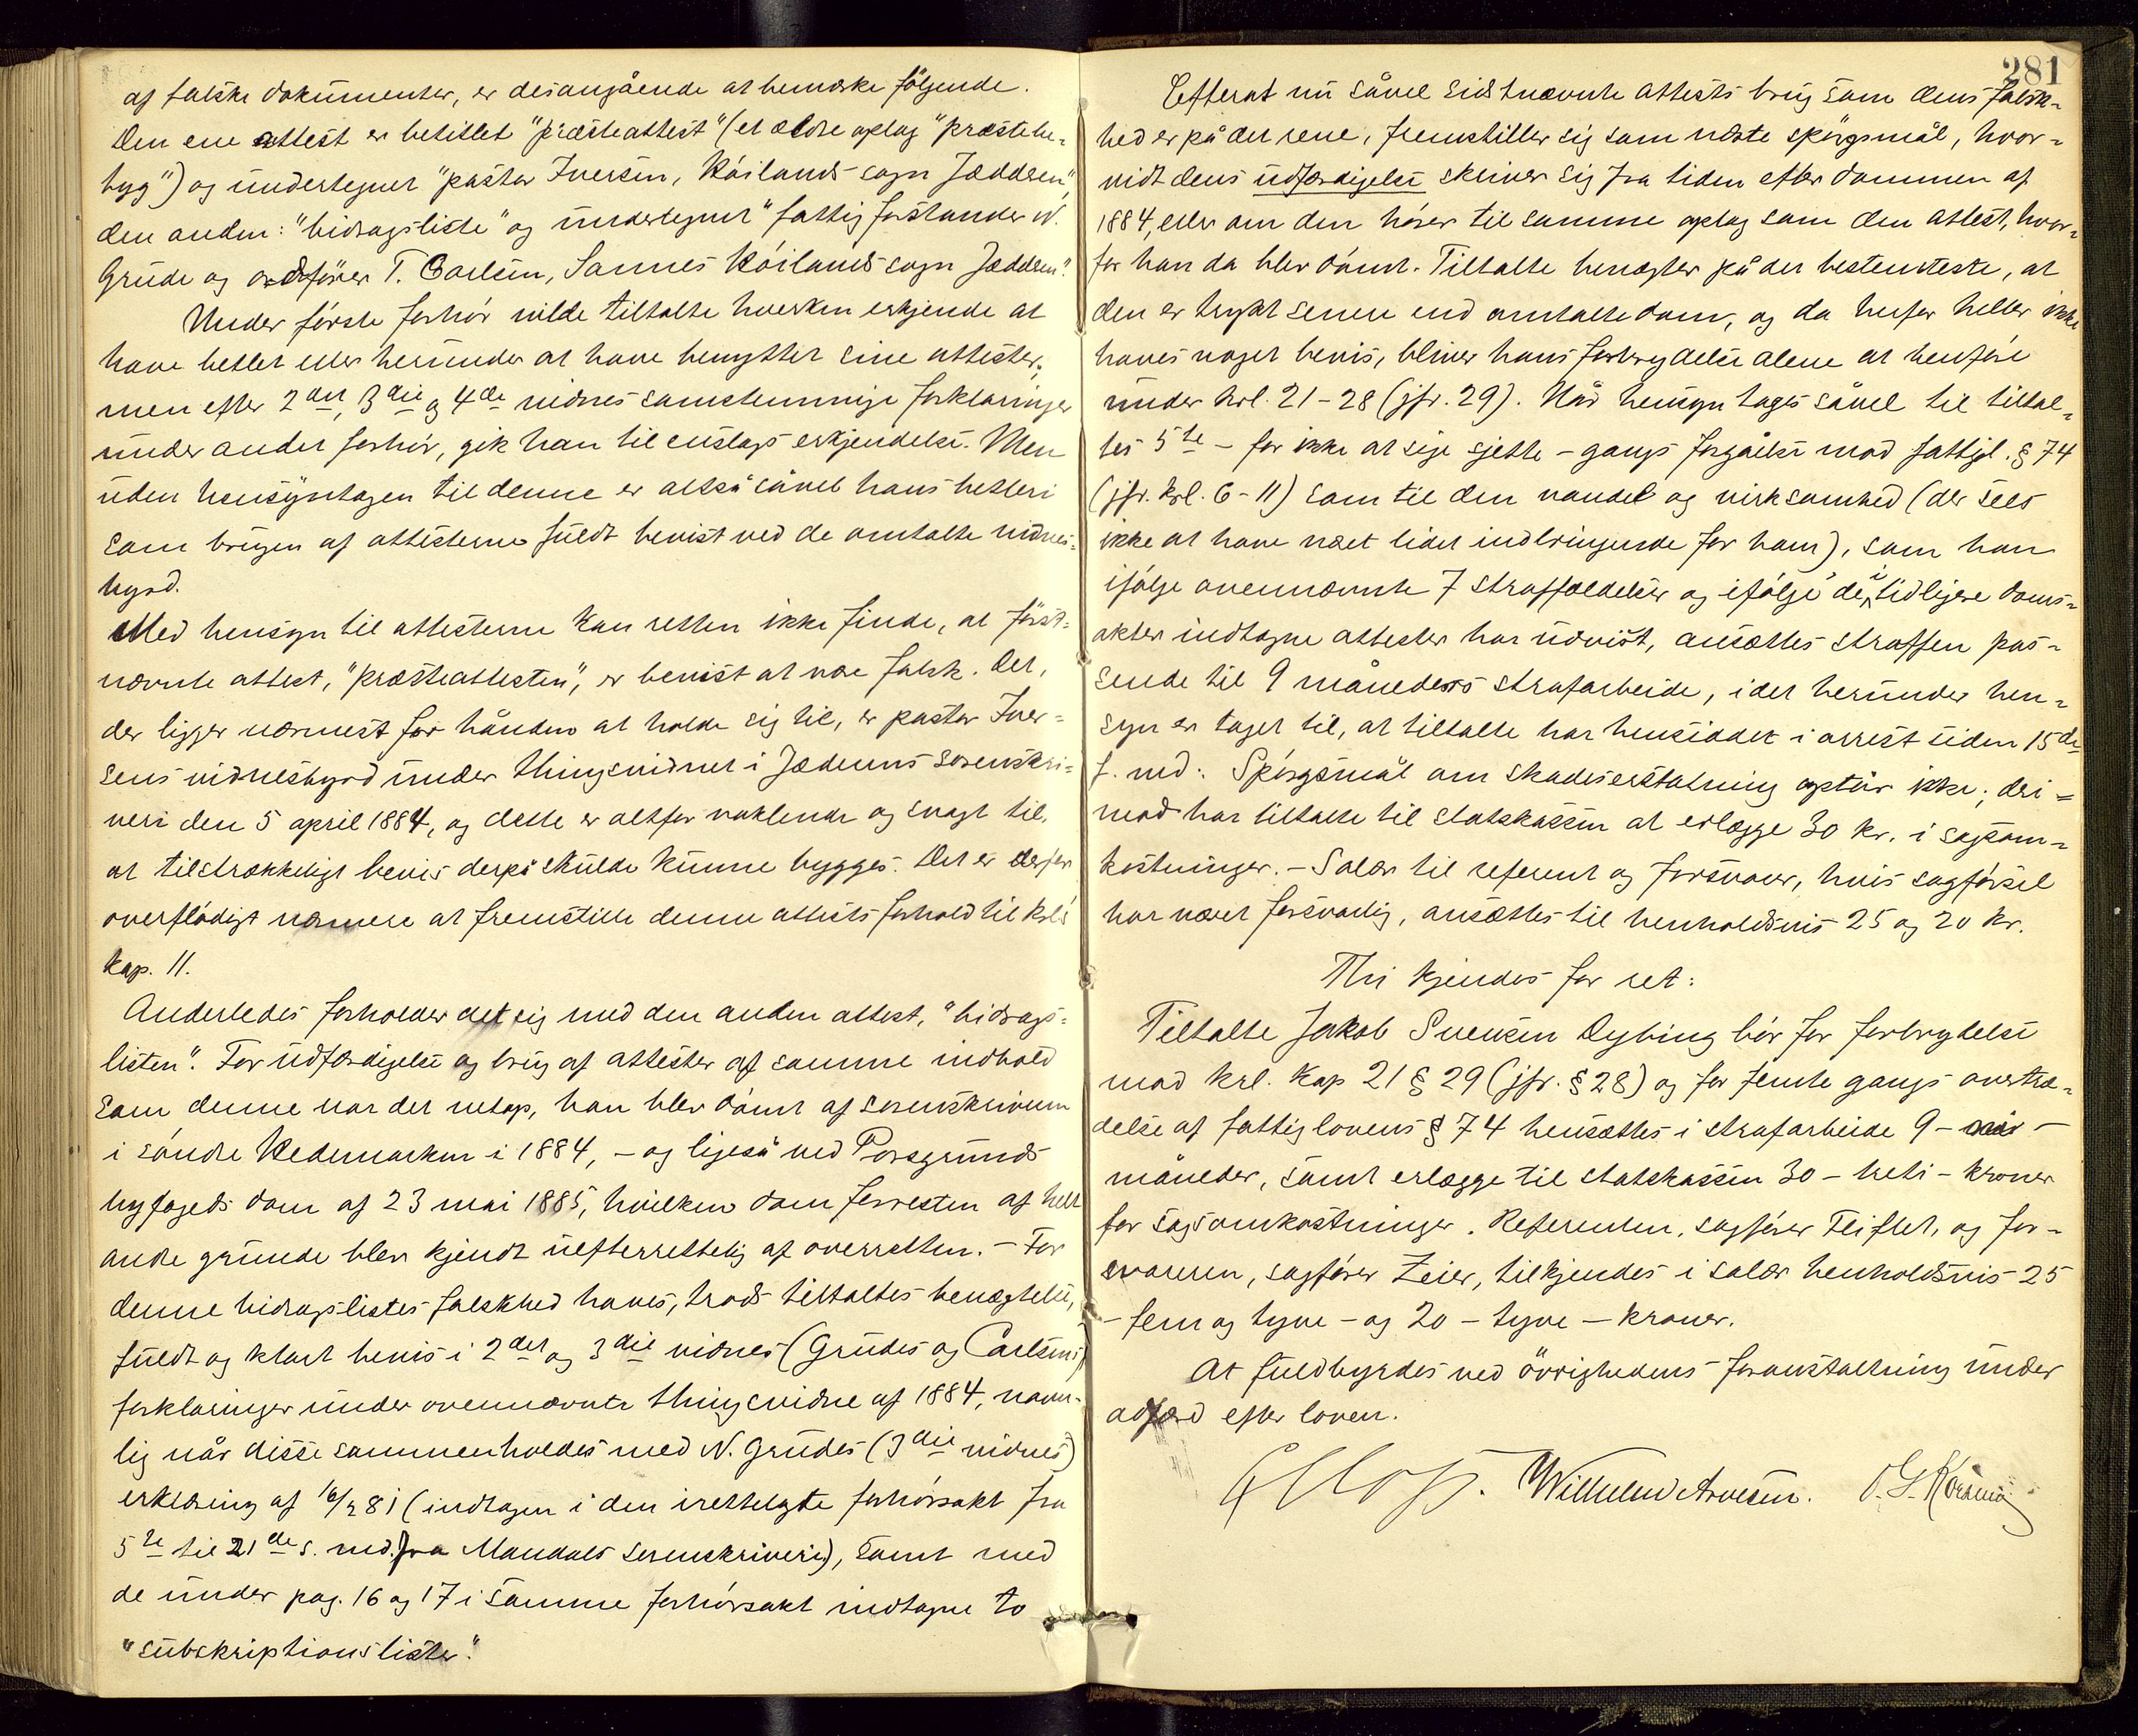 af falske dokumenter, er desangående at bemærke følgende.
Den ene attest er betitlet "præsteattest" (et ældre oplag "præstebe-
byg") og undertegnet "pastor Iversen, Køilands sogn Jæddren",
den anden: "bidragsliste" og undertegnet "fattigforstander N.
Grude og ordfører T. Carlsen, Sannes Køilands sogn Jæddren".
Under første forhør vilde tiltalte hverken erkjende at
have betlet eller herunder at have benyttet sine attester;
men efter 2det, 3die og 4de vidnes samstemmige forklaringer
under andet forhør, gik han til enslags erkjendelse. Men
uden hensyntagen til denne er altså såvel hans betleri
som brugen af attesterne fuldt bevist ved de omtalte vidnes-
byrd.
Med hensyn til attesterne kan retten ikke finde, at først-
nævnte attest, "præsteattesten", er bevist at være falsk. Det,
der ligger nærmest for hånden at holde sig til, er pastor Iver-
sens vidnesbyrd under thingsvidnet i Jæderens sorenskri-
veri den 5 april 1884, og dette er altfor vaklende og svagt til,
at tilstrækkeligt bevis derpå skulde kunne bygges. Det er derfor
overflødigt nærmere at fremstille denne attests forhold til krl's
kap. 11.
Anderledes forholder det sig med den anden attest, "bidrags-
listen". For udfærdigelse og brug af attester af samme indhold
som denne var det netop, han blev dømt af sorenskriveren
i søndre Hedemarken i 1884, – og ligeså ved Porsgrunds
byfogeds dom af 23 mai 1885, hvilken dom forresten af helt
andre grunde blev kjendt uefterrettelig af overretten. – For
denne bidragslistes falskhed haves, trods tiltaltes benægtelse,
fuldt og klart bevis i 2det og 3die vidnes (Grudes og Carlsens)
forklaringer under ovennævnte thingsvidne af 1884, navn-
lig når disse sammenholdes med N. Grudes (3die vidnes)
erklæring af 16/2 81 (indtagen i den irettelagte forhørsakt fra
5te til 21de s. md. fra Mandals sorenskriveri), samt med
de under pag. 16 og 17 i samme forhørsakt indtagne to
"subskriptionslister".
281
Efterat nu såvel sidstnævnte attests brug som dens falsk-
hed er på det rene, fremstiller sig som næste spørgsmål, hvor-
vidt dens udfærdigelse skriver sig fra tiden efter dommen af
1884, eller om den hører til samme oplag som den attest, hvor-
for han da blev dømt. Tiltalte benægter på det bestemteste, at
den er trykt senere end omtalte dom, og da herfor heller ikke
haves noget bevis, bliver hans forbrydelse alene at henføre
under krl. 21-28 (jfr. 29). Når hensyn tages såvel til tiltal-
tes 5te – for ikke at sige sjette – gangs forgåelse mod fattigl. § 74
(jfr. krl. 6-11) som til den vandel og virksomhed (der sees
ikke at have været lidet indbringende for ham), som han
ifølge ovennævnte 7 straffældelser og ifølge de i tidligere doms-
akter indtagne attester har udvist, ansættes straffen pas-
sende til 9 måneders strafarbeide, idet herunder hen-
syn er taget til, at tiltalte har hensiddet i arrest siden 15de
f. md: Spørgsmål om skadeserstatning opstår ikke; deri-
mod har tiltalte til statskassen at erlægge 30 kr. i sagsom-
kostninger. – Salær til referent og forsvarer, hvis sagførsel
har været forsvarlig, ansættes til henholdsvis 25 og 20 kr.
Thi kjendes for ret:
Tiltalte Jakob Svensen Dybing bør for forbrydelse
mod krl. kap 21 § 29 (jfr. § 28) og for femte gangs overtræ-
delse af fattiglovens § 74 hensættes i strafarbeide 9 – ni –
måneder, samt erlægge til statskassen 30 – treti – kroner
for sagsomkostninger. Referenten, sagfører Fliflet, og for-
svareren, sagfører Zeier, tilkjendes i salær henholdsvis 25
– fem og tyve – og 20 – tyve – kroner.
At fuldbyrdes ved øvrighedens foranstaltning under
adfærd efter loven.
Wilhelm Arnesen.